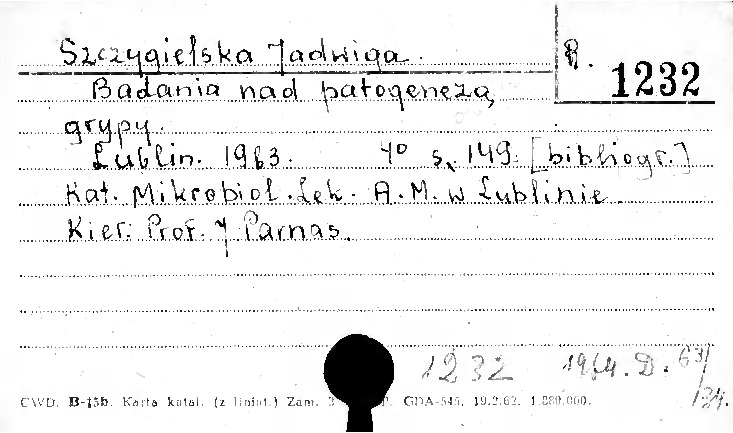 Szczygielska Jadwiga.
R. 1232
Badania nad patogenezą
grypy.
Lublin. 1963. 4° s. 149. [bibliogr.]
Kat. Mikrobiol. Lek. A.M. w Lublinie.
Kier. Prof. J Parnas.
1232 1964. D. 63/
134.
CWD. B-15b. Karta katal. (z liniat.) Zam. 3 GDA-545, 19.2.62. 1.000.000.